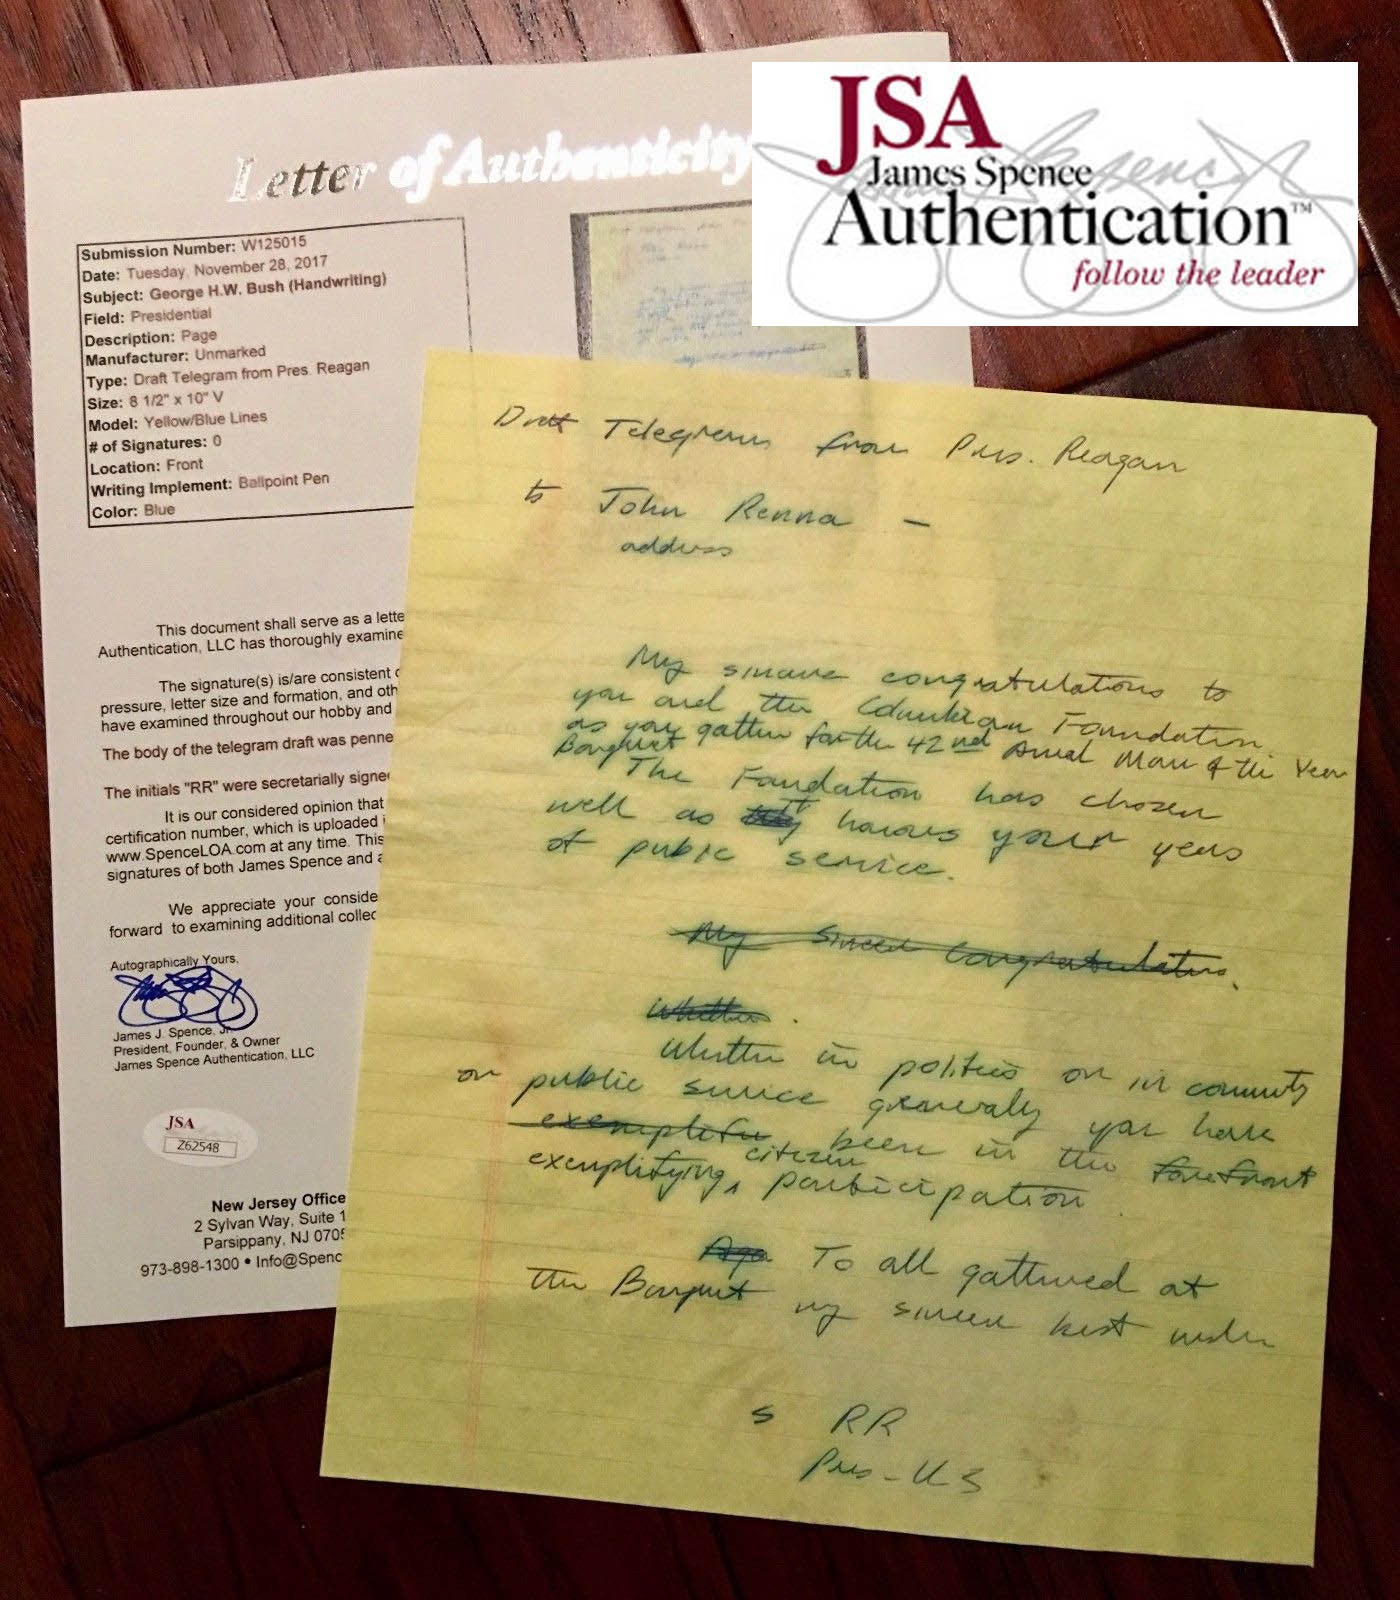 JSA
James Spence
Authentication™
follow the leader
Letter of Authenticity
Submission Number: W125015
Date: Tuesday, November 28, 2017
Subject: George H.W. Bush (Handwriting)
Field: Presidential
Description: Page
Manufacturer: Unmarked
Type: Draft Telegram from Pres. Reagan
Size: 8 1/2" x 10" V
Model: Yellow/Blue Lines
# of Signatures: 0
Location: Front
Writing Implement: Ballpoint Pen
Color: Blue
This document shall serve as a lette
Authentication, LLC has thoroughly examine
The signature(s) is/are consistent
pressure, letter size and formation, and oth
have examined throughout our hobby and
The body of the telegram draft was penne
The initials "RR" were secretarially signe
It is our considered opinion that
certification number, which is uploaded
www.SpenceLOA.com at any time. This
signatures of both James Spence and a
We appreciate your conside
forward to examining additional collec
Autographically Yours,
James J. Spence, Jr.
President, Founder, & Owner
James Spence Authentication, LLC
JSA
Z62548
New Jersey Office
2 Sylvan Way, Suite 1
Parsippany, NJ 0705
973-898-1300 • Info@Spenc
Draft Telegram from Pres. Reagan
to John Renna –
address
My sincere congratulations to
you and the Columbian Foundation
as you gather for the 42nd Annual Man of the Year
Banquet
The Foundation has chosen
well as it honors your years
of public service.
My Sincere Congratulations.
Whether.
Whether in politics or in community
or public service generally you have
been in the forefront
exemplifying citizen participation.
To all gathered at
the Banquet my sincere best wishes
s RR
Pres – US